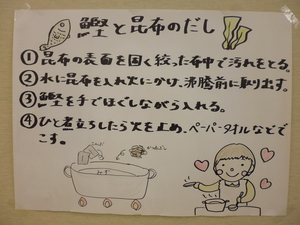 鰹と昆布のだし
①昆布の表面を固く絞った布巾で汚れをとる。
②水に昆布を入れ火にかけ、沸騰前に取り出す。
③鰹を手でほぐしながら入れる。
④ひと煮立ちしたら火を止め、ペーパータオルなどで
こす。